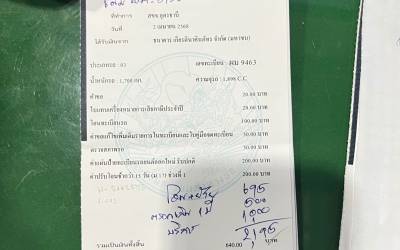 ที่ทำการ สขจ.อุดรธานี
วันที่ 2 เมษายน 2568
ได้รับเงินจาก ธนาคาร เกียรตินาคินภัทร จำกัด (มหาชน)
ประเภทรถ : 03 เลขทะเบียน : ผน 9463
น้ำหนักรถ : 1,700 กก. ความจุรถ : 1,898 C.C
ค่าคำขอ 20.00 บาท
ใบแทนเครื่องหมายการเสียภาษีประจำปี 20.00 บาท
โอนทะเบียนรถ 100.00 บาท
ค่าขอแก้ไขเพิ่มเติมรายการในทะเบียนและใบคู่มือจดทะเบียน 50.00 บาท
ตรวจสภาพรถ 50.00 บาท
ค่าแผ่นป้ายทะเบียนรถยนต์ออกใหม่ รับปกติ 200.00 บาท
ค่าปรับโอนช้ากว่า 15 วัน (ม.17) ช่วงที่ 1 200.00 บาท
695
500
บริการ 1,000
2,195
รวมเป็นเงินทั้งสิ้น 640.00 บาท